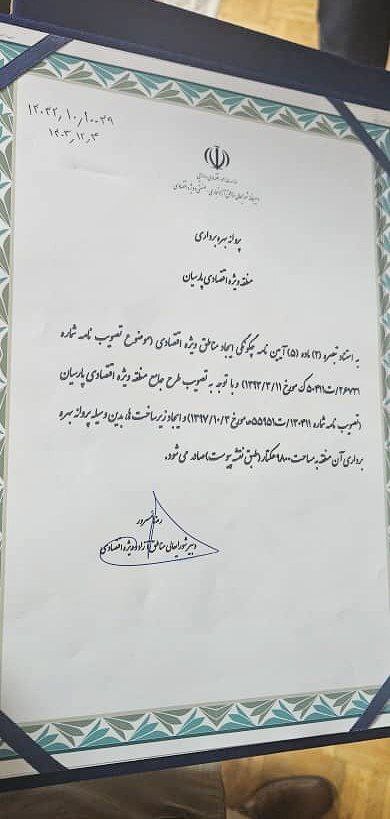 ۱۴۰۳٫۱۲٫۴
پروانه بهره برداری
منطقه ویژه اقتصادی پارسیان
به استناد تبصره (۲) ماده (۵) آیین نامه چگونگی ایجاد مناطق ویژه اقتصادی (موضوع تصویب نامه شماره
مورخ ۱۳۹۳/۳/۱۱) و با توجه به تصویب طرح جامع منطقه ویژه اقتصادی پارسیان
(تصویب نامه شماره ۱۳۰۴۱۱/ت۵۵۱۵۱ه مورخ ۱۳۹۷/۱۰/۳) و ایجاد زیرساخت ها، بدین وسیله پروانه بهره
برداری آن منطقه به مساحت ۹۸۰۰ هکتار (طبق نقشه پیوست) صادر می شود.
رضا مسرور
دبیر شورایعالی مناطق آزاد و ویژه اقتصادی